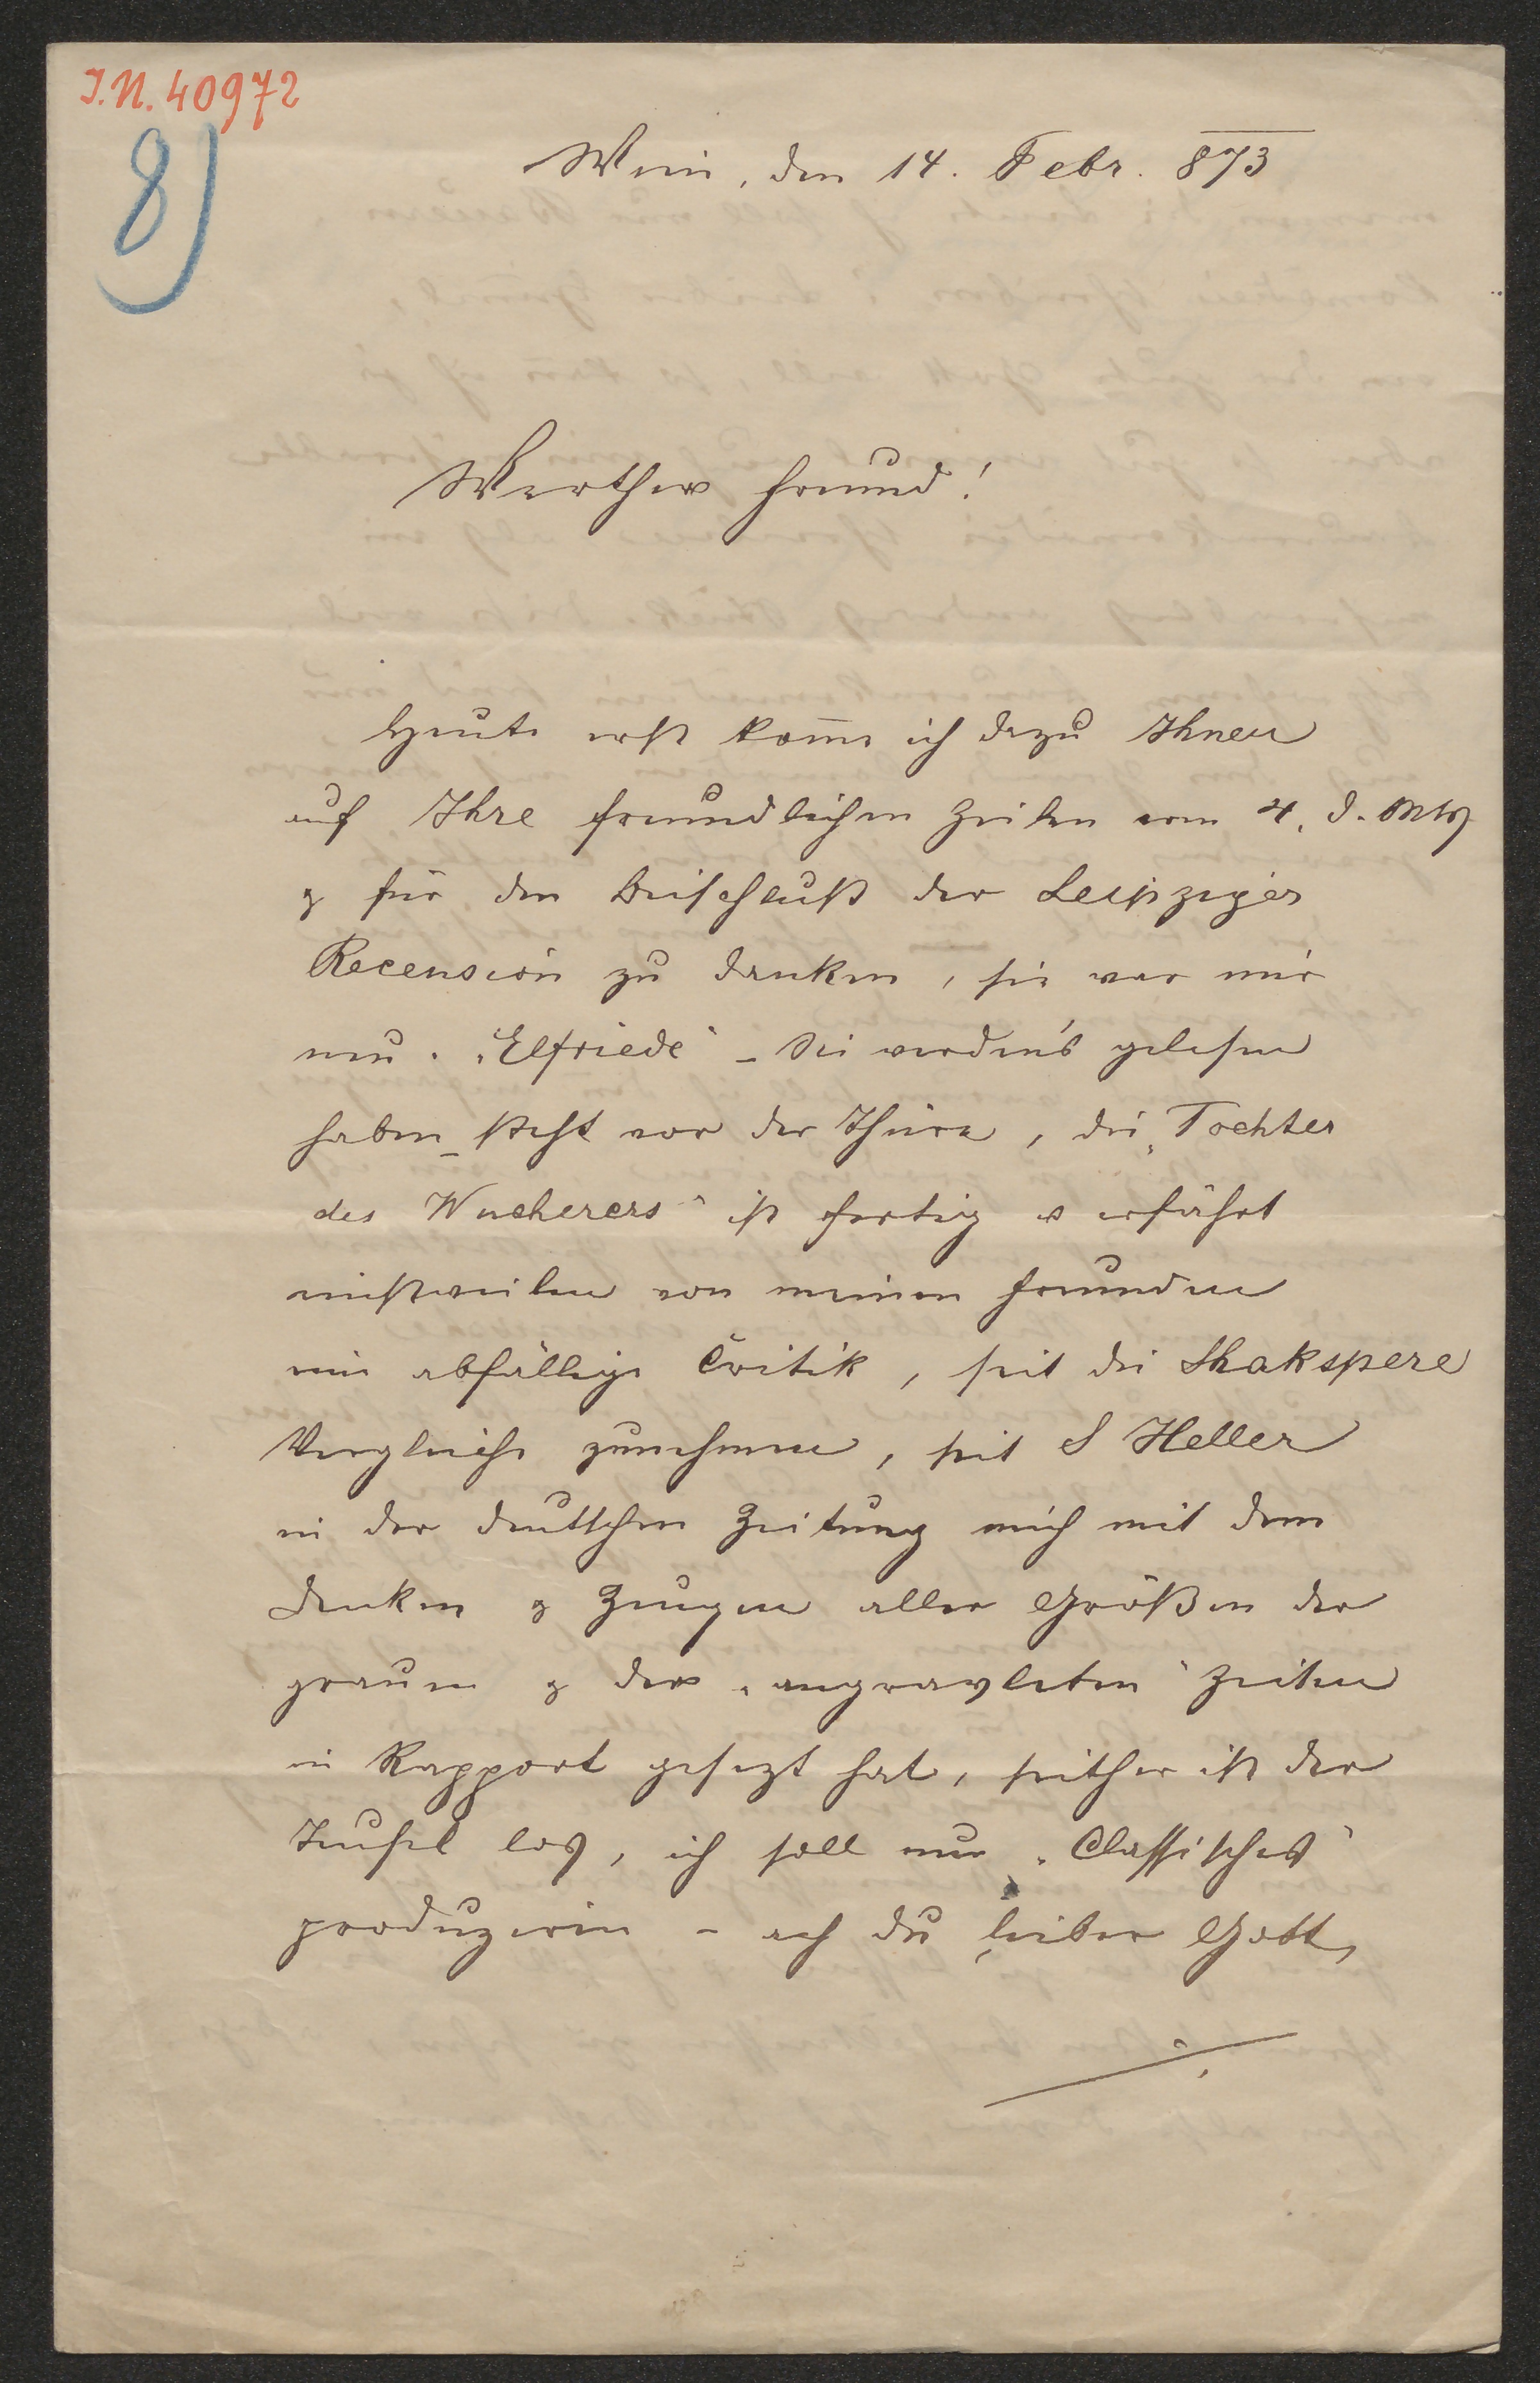 J.N. 40972
8)
Wien, den 14. Febr. 873
Werther Freund!
Heute erst kom̄e ich dazu Ihnen
auf Ihre freundlichen Zeilen vom 4. d. Mts
& für den Beischluß der Leipziger
Recension zu danken, sie war mir
neu. „Elfriede“ – Sie werden's gelesen
haben – steht vor der Thüre, die „Tochter
des Wucherers“ ist fertig u erfährt
einstweilen von meinen Freunden
eine abfällige Critik, seit die Shakspere
Vergleiche zunehmen, seit S Heller
in der deutschen Zeitung mich mit dem
Denken & Zeugen aller Größen der
grauen & der „angrauleten“ Zeiten
in Rapport gesezt hat, seither ist der
Teufel los, ich soll nur „Classisches“
produzieren – ach du lieber Gott,
./.